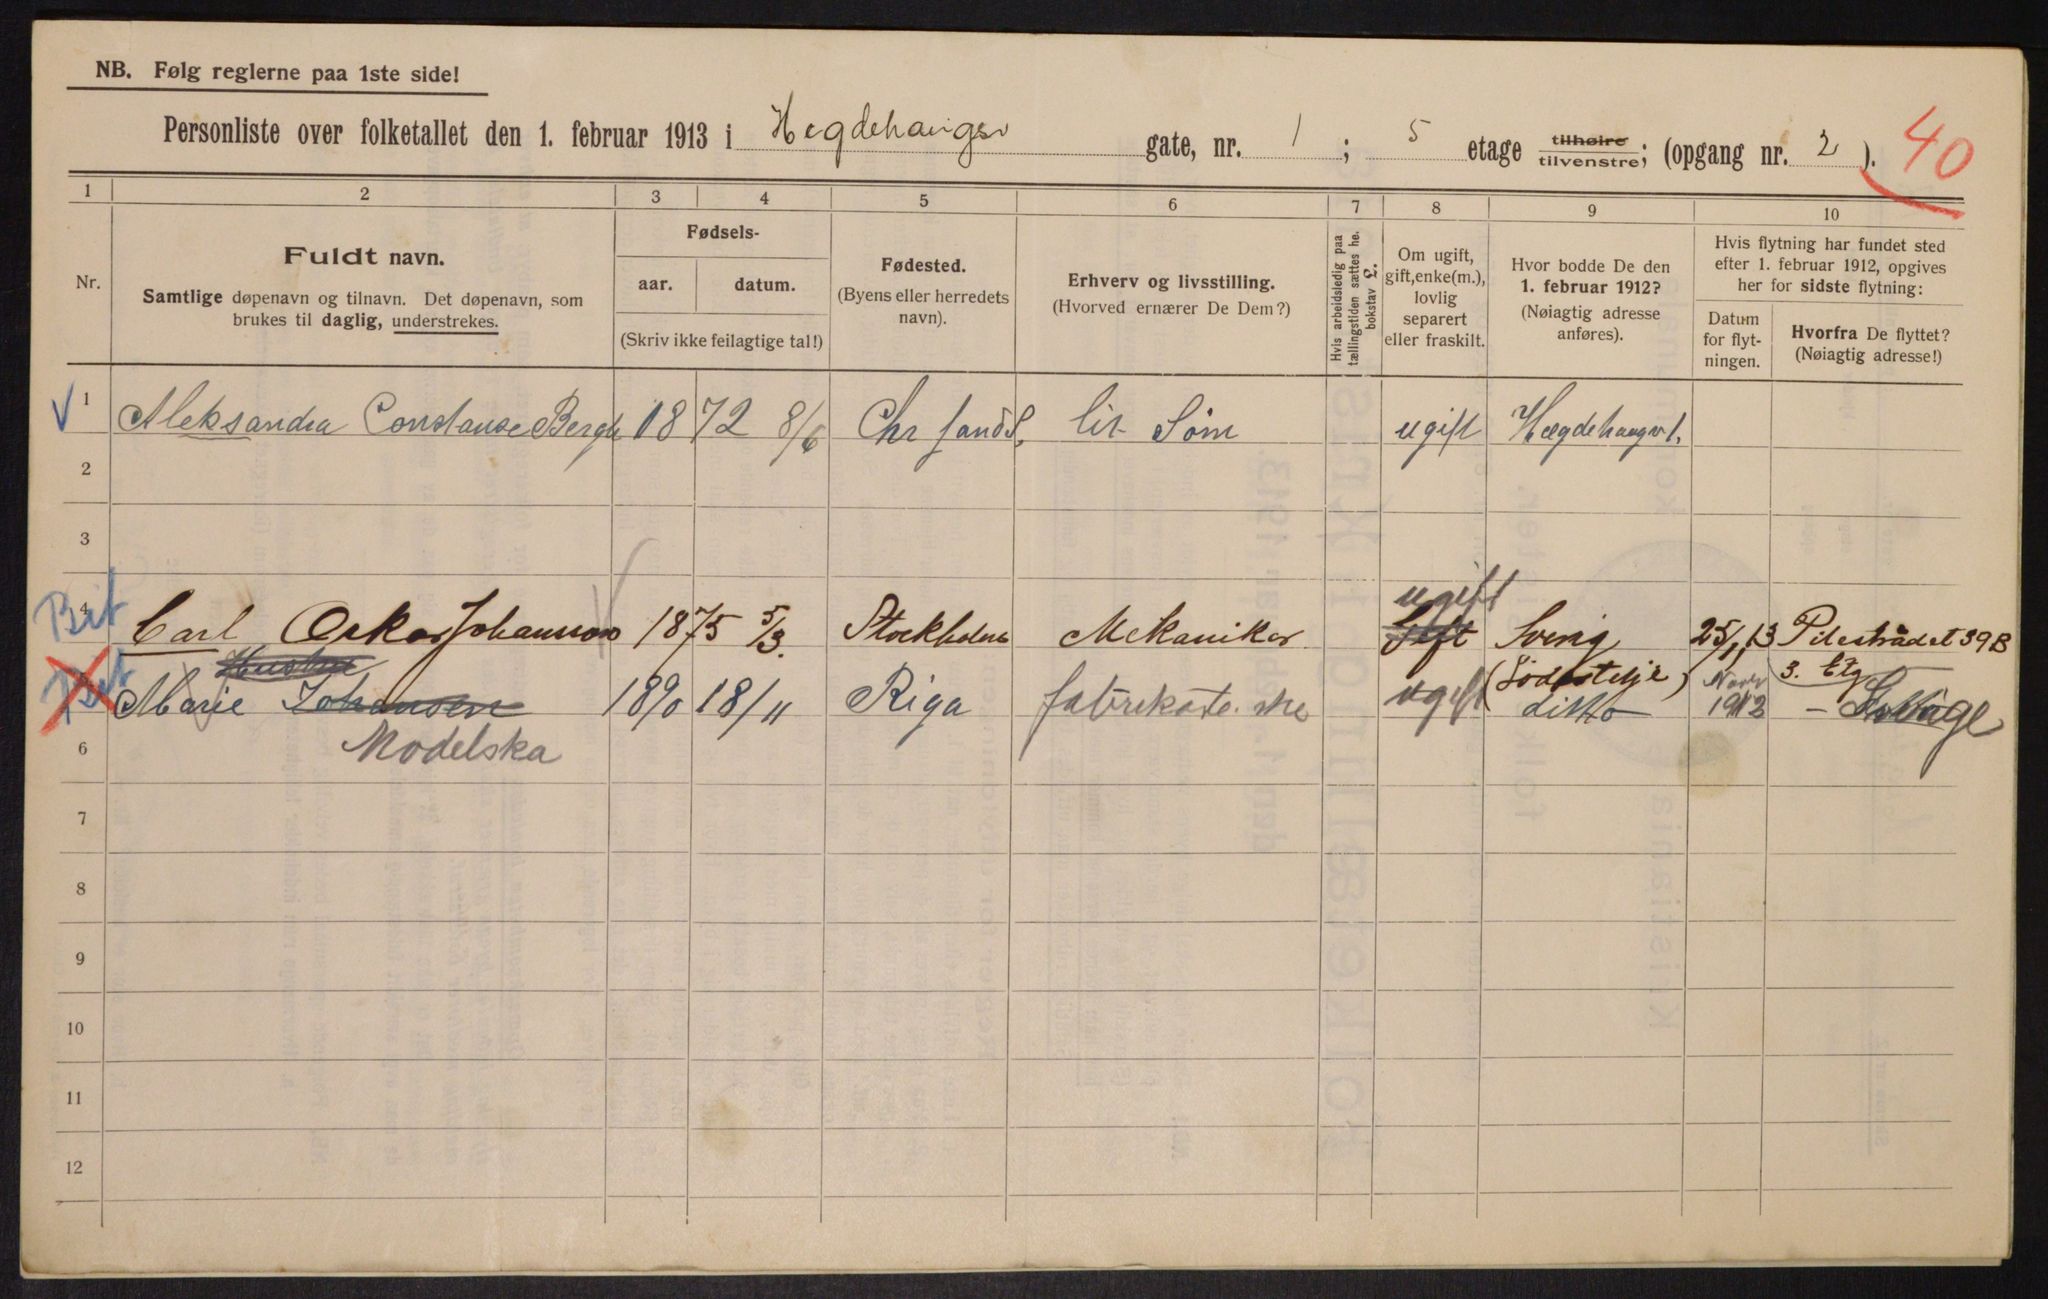 NB. Følg reglerne paa 1ste side!
Personliste over folketallet den 1. februar 1913 i Hegdehaugsv gate, nr. 1 ; 5 etage tilhøire tilvenstre; (opgang nr. 2 ).
40
1 2 3 4 5 6 7 8 9 10
Nr.
Fuldt navn.
Samtlige døpenavn og tilnavn. Det døpenavn, som
brukes til daglig, understrekes.
Fødsels-
aar. datum.
(Skriv ikke feilagtige tal!)
Fødested.
(Byens eller herredets
navn).
Erhverv og livsstilling.
(Hvorved ernærer De Dem?)
Hvis arbeidsledig paa
tællingstiden sættes he.
bokstav L.
Om ugift,
gift, enke(m.),
lovlig
separert
eller fraskilt.
Hvor bodde De den
1. februar 1912?
(Nøiagtig adresse
anføres).
Hvis flytning har fundet sted
efter 1. februar 1912, opgives
her for sidste flytning:
Datum
for flyt-
ningen.
Hvorfra De flyttet?
(Nøiagtig adresse!)
1 Aleksandra Constanse Bergh 1872 8/6 Chr sand S. Søm ugift Hægdehaugv 1.
2
3
ugift
4 Carl Oskar Johansson 1875 5/3. Stockholm Mekaniker Gift Sverig 25/1 13 Pilestrædet 39B
(Södertelje) 3. Etg
Marie Johansen 1890 18/11 Riga ugift ditto Novbr 1912
6 Modelska
7
8
9
10
11
12